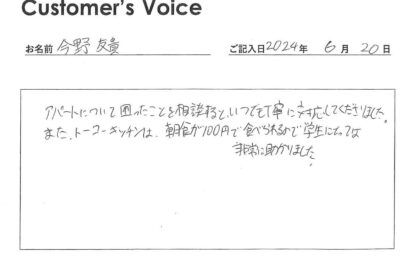 Customer's Voice
お名前 今野 友貴 ご記入日 2024年 6月 20日
アパートについて困ったことを相談すると、いつでも丁寧に対応してくださりました。
また、トーコーキッチンは、朝食が100円で食べられるので学生にとっては
非常に助かりました。